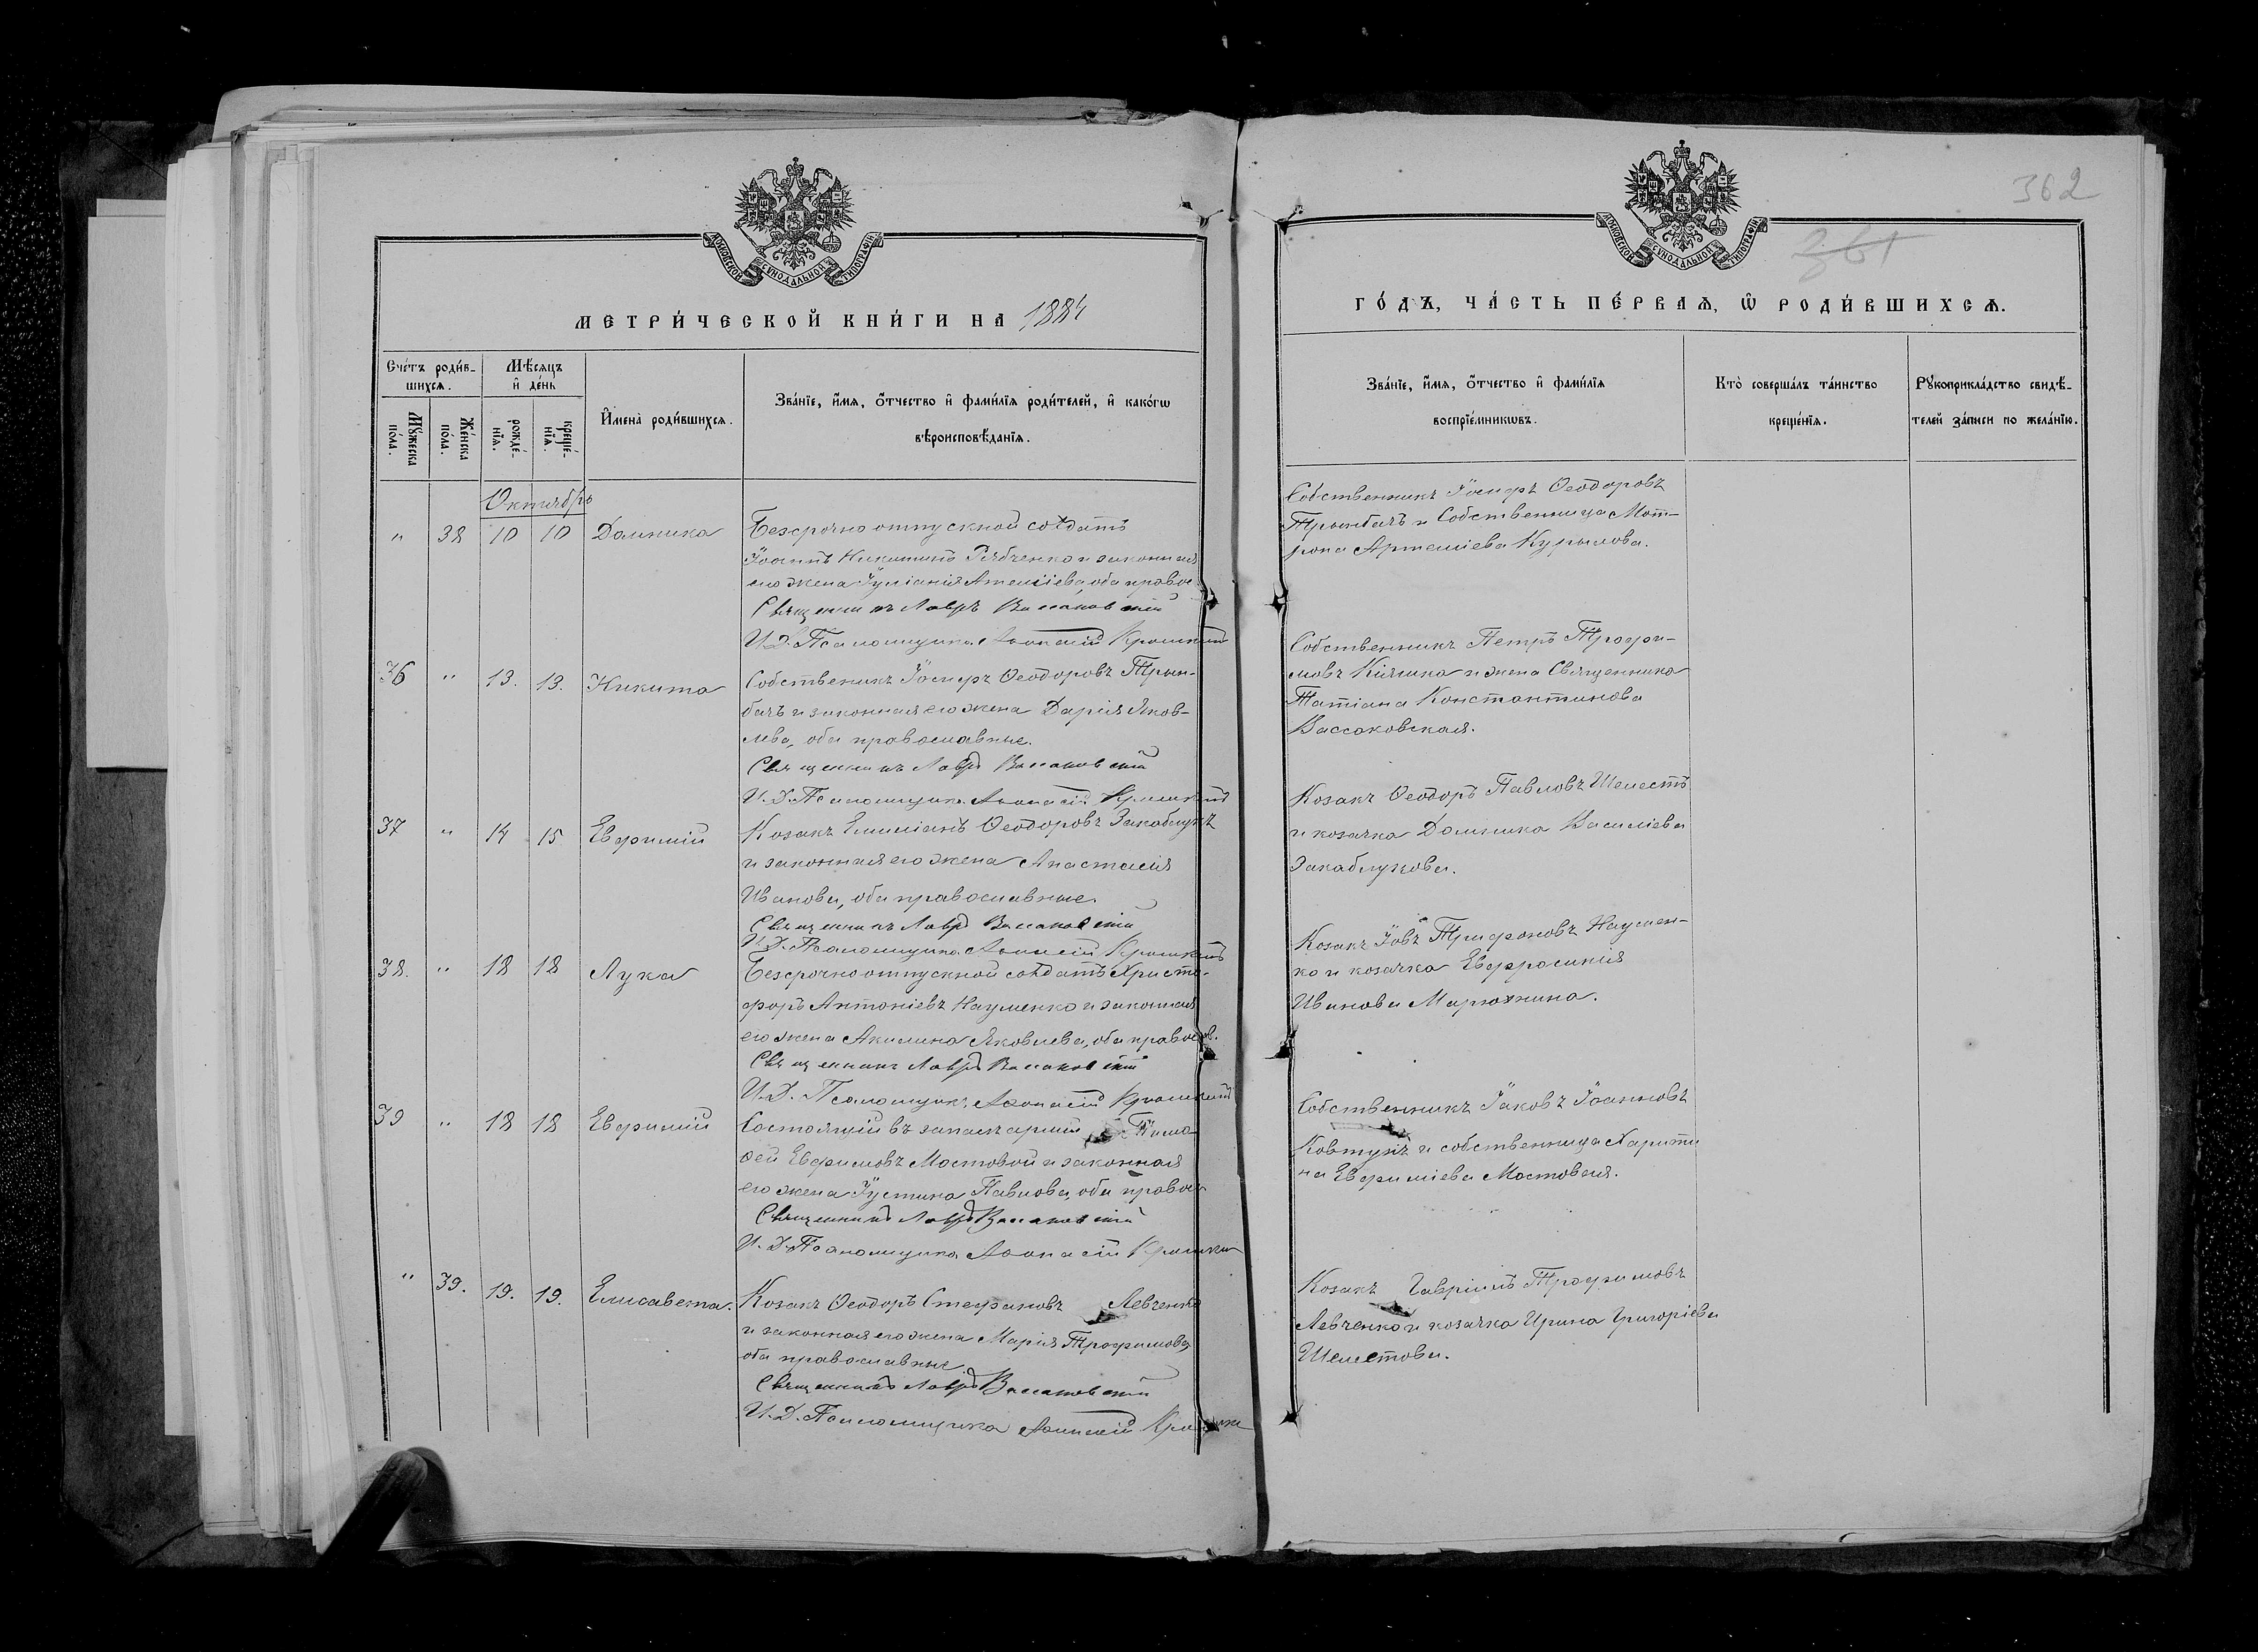 МОСКОВСКОЙ СѴНОДАЛЬНОЙ ТИПОГРАФІИ
МЕТРИ́ЧЕСКОЙ КНИ́ГИ НА 1884
Сче́тъ роди́в-
шихсѧ.
Мѣ́сѧцъ
и҆ де́нь
Мꙋ́жеска
по́ла.
Же́нска
по́ла.
рожде́-
нїѧ.
креще́-
нїѧ.
И҆мена̀ роди́вшихсѧ.
Зва́нїе, и҆́мѧ, ѻ҆́тчество и҆ фами́лїѧ роди́телей, и҆ како́гѡ
вѣроисповѣ́данїѧ.
Октябрь
" 38 10 10 Домника
Безсрочно отпускной солдатъ
Іоаннъ Никитинъ Рябченко и законная
его жена Іуліанія Артеміева, оба правос.
Священникъ Лавръ Вассаковскій
И. Д. Псаломщика Аѳанасій
36 " 13. 13. Никита
Собственикъ Іосифъ Ѳеодоровъ Трым-
бачъ и законная его жена Дарія Яков-
лева, оба православные.
Священникъ Лавръ Вассаковскій
И. Д. Псаломщика Аѳанасій
37 " 14 15 Евфимій
Козакъ Емиліанъ Ѳеодоровъ Закаблукъ
и законная его жена Анастасія
Иванова, оба православные.
Священникъ Лавръ Вассаковскій
И. Д. Псаломщика Аѳанасій
38. " 18 18 Лука
Безсрочно отпускной солдатъ Христо-
форъ Антоніевъ Науменко и законная
его жена Акилина Яковлева, оба правосл.
Священникъ Лавръ Вассаковскій
И. Д. Псаломщика Аѳанасій
39 " 18 18 Евфимій
Состоящій въ запасѣ арміи Тимо
ѳей Евфимовъ Мостовой и законная
его жена Іустина Павлова, оба правос
Священникъ Лавръ Вассаковскій
И. Д. Псаломщика Аѳанасій
" 39. 19. 19. Елисавета.
Козакъ Ѳеодоръ Стефановъ Левченко
и законная его жена Марія Трофимова,
оба православные
Священникъ Лавръ Вассаковскій
И. Д. Псаломщика Аѳанасій
362
361
МОСКОВСКОЙ СѴНОДАЛЬНОЙ ТИПОГРАФІИ
ГО́ДЪ, ЧА́СТЬ ПЕ́РВАѦ, Ѽ РОДИ́ВШИХСѦ.
Зва́нїе, и҆́мѧ, ѻ҆́тчество и҆ фами́лїѧ
воспрїе́мникѡвъ.
Кто̀ соверша́лъ та́инство
креще́нїѧ.
Рꙋкоприкла́дство свидѣ́-
телей за́писи по жела́нїю.
Собственникъ Іосифъ Ѳеодоровъ
Трымбачъ и Собственница Мот-
рона Артеміева Курылова.
Собственникъ Петръ Трофи-
мовъ Кіяшка и жена Священника
Татіана Константинова
Вассаковская.
Козакъ Ѳеодоръ Павловъ Шелестъ
и козачка Домника Василіева
Закаблукова.
Козакъ Іовъ Трифоновъ Наумен-
ко и козачка Евфросинія
Иванова Марюхнина.
Собственникъ Іаковъ Іоанновъ
Ковтунъ и собственница Харити
на Евфиміева Мостовая.
Козакъ Гавріилъ Трофимовъ
Левченко и козачка Ирина Григоріева
Шелестова.